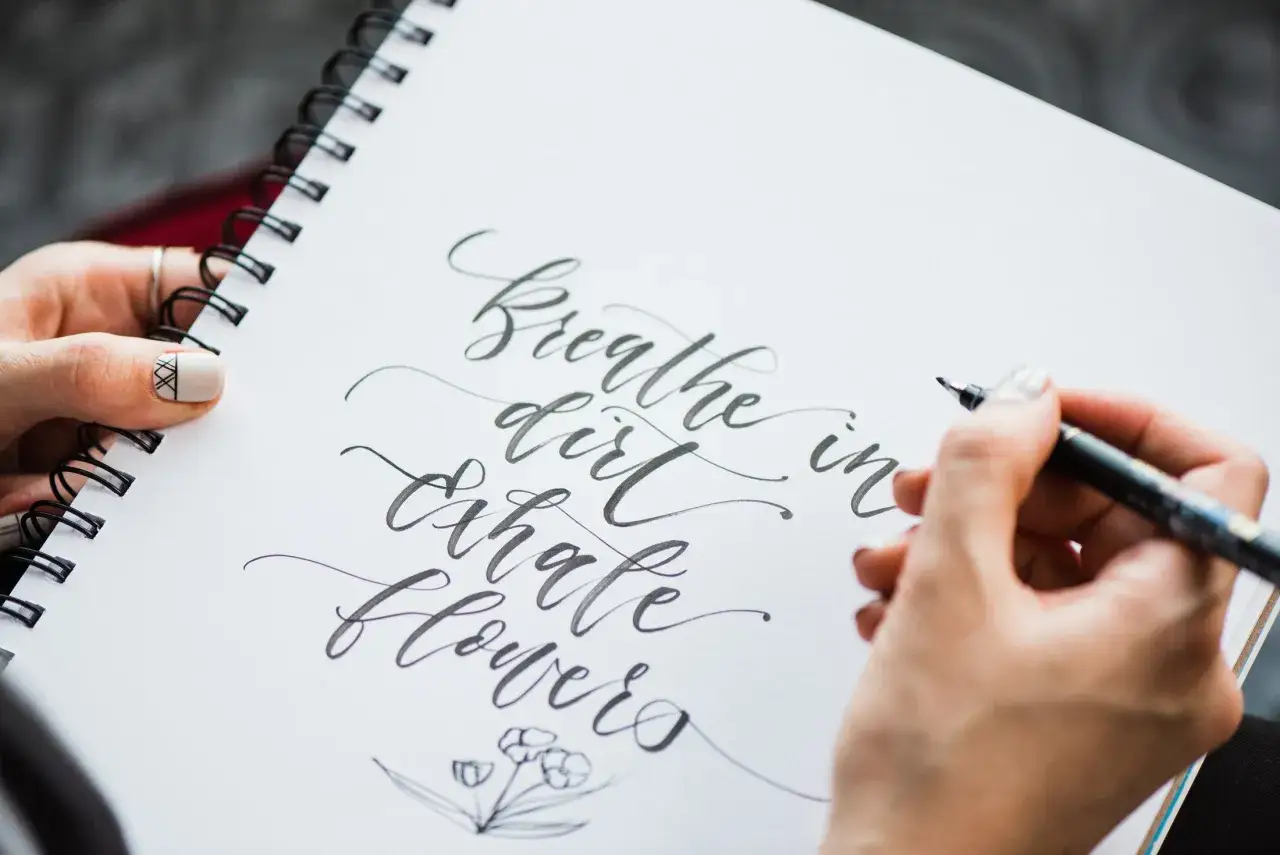 breathe in
dirt
Exhale
flowers